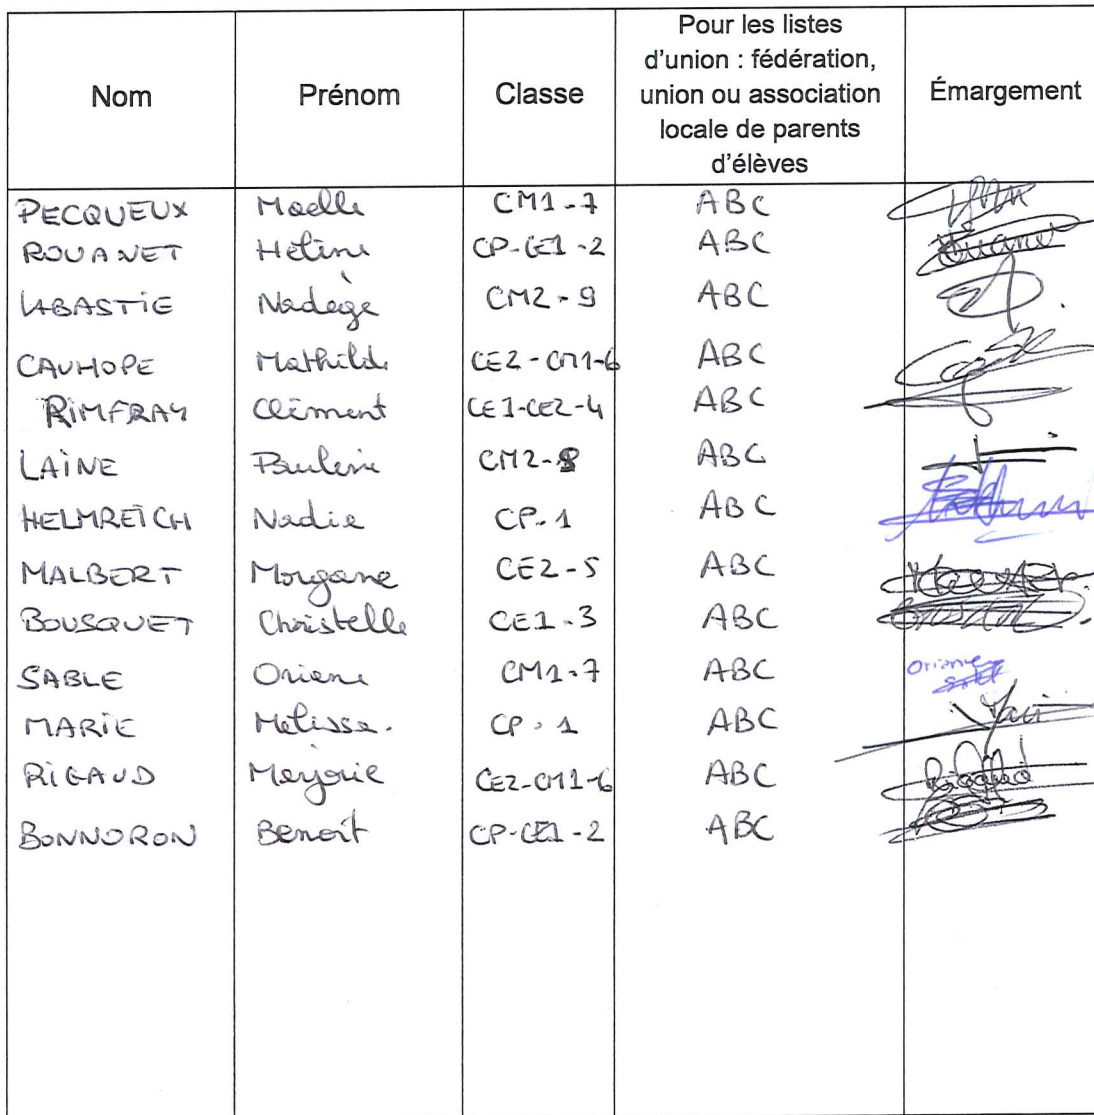 Nom Prénom Classe Pour les listes d'union : fédération, union ou association locale de parents d'élèves Émargement
PECQUEUX Maelle CM1-7 ABC
ROUANET Hélène CP-CE1-2 ABC
LABASTiE Nadège CM2-9 ABC
CAUHOPE Mathilde CE2-CM1-6 ABC
RiMFRAY Clément CE1-CE2-4 ABC
LAiNE Pauline CM2-8 ABC
HELMREiCH Nadia CP-1 ABC
MALBERT Morgane CE2-5 ABC
BOUSQUET Christelle CE1-3 ABC
SABLE Oriane CM1-7 ABC Oriane
MARiE Mélissa. CP-1 ABC
RiGAUD Marjorie CE2-CM1-6 ABC
BONNORON Benoit CP-CE1-2 ABC